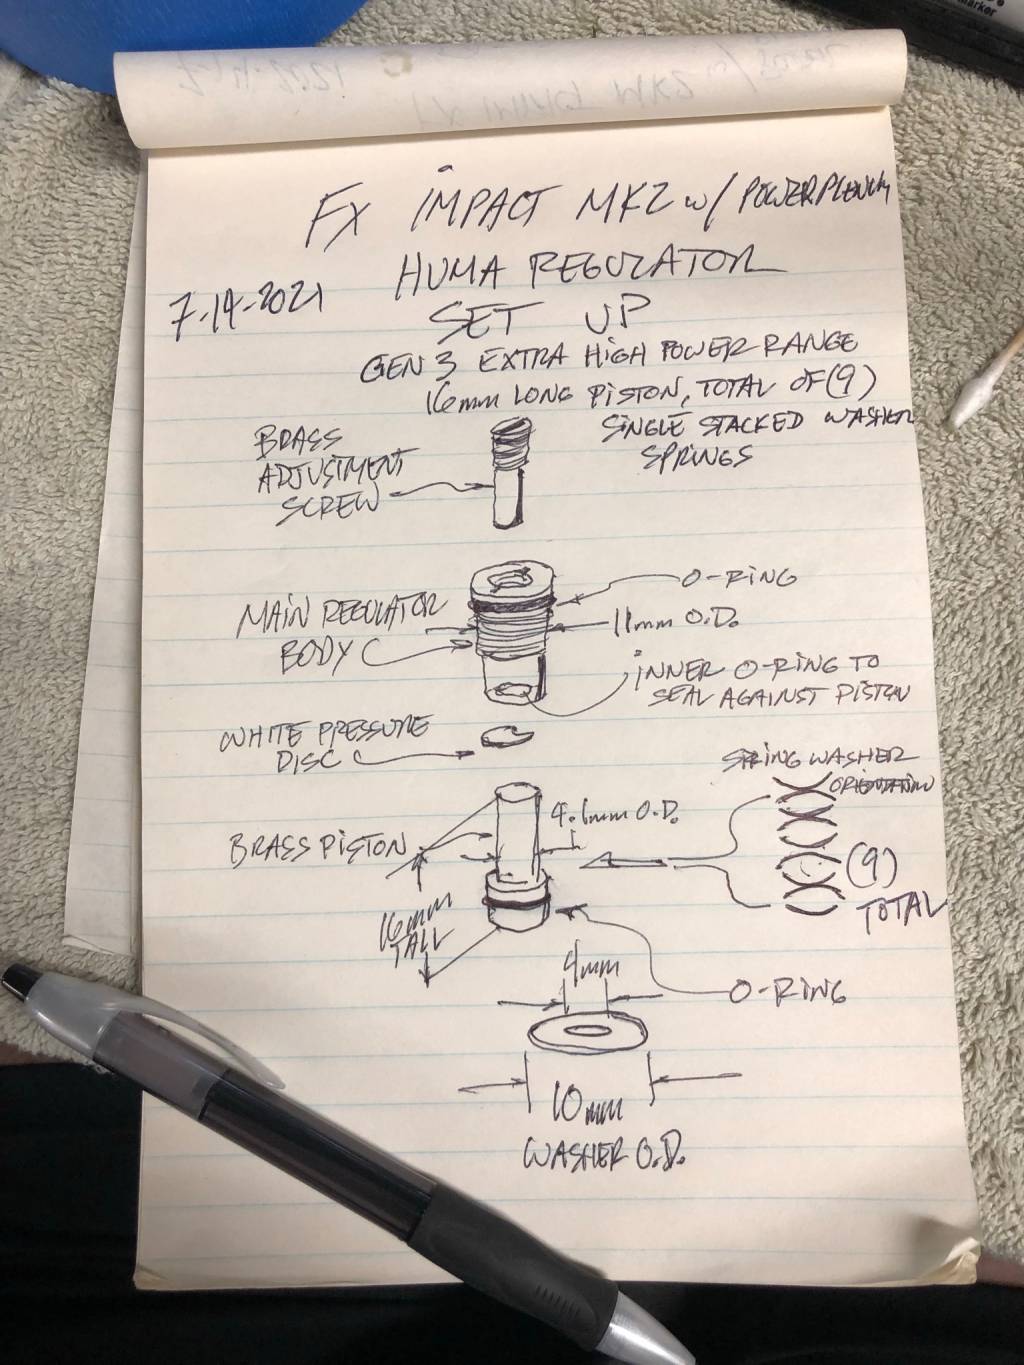 FX IMPACT MK2 w/ POWER PLENUM
HUMA REGULATOR
7-14-2021
SET UP
GEN 3 EXTRA HIGH POWER RANGE
16mm LONG PISTON, TOTAL OF (9)
SINGLE STACKED WASHER
SPRINGS
BRASS
ADJUSTMENT
SCREW
O-RING
MAIN REGULATOR
BODY
11mm O.D.
INNER O-RING TO
SEAL AGAINST PISTON
WHITE PRESSURE
DISC
SPRING WASHER
ORIENTATION
4.6mm O.D.
BRASS PISTON
(9)
TOTAL
16mm
TALL
4mm
O-RING
10mm
WASHER O.D.